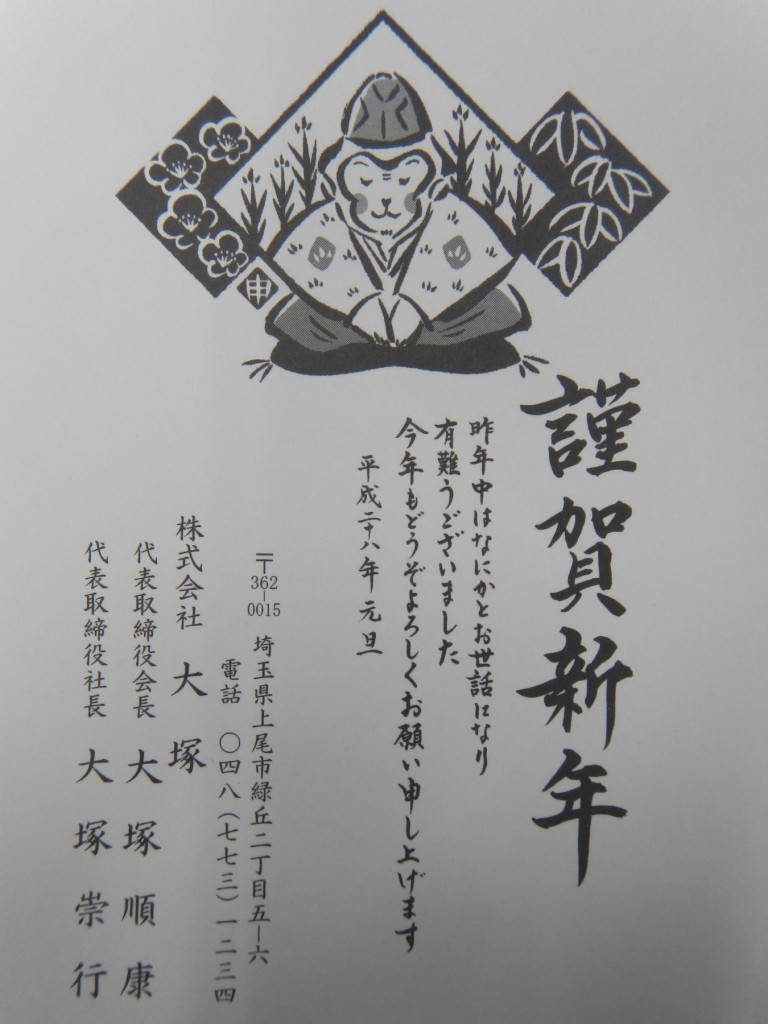 申
謹賀新年
昨年中はなにかとお世話になり
有難うございました
今年もどうぞよろしくお願い申し上げます
平成二十八年 元旦
〒362-0015 埼玉県上尾市緑丘二丁目五-六
電話 〇四八(七七三)一二三四
株式会社 大塚
代表取締役会長 大塚順康
代表取締役社長 大塚崇行